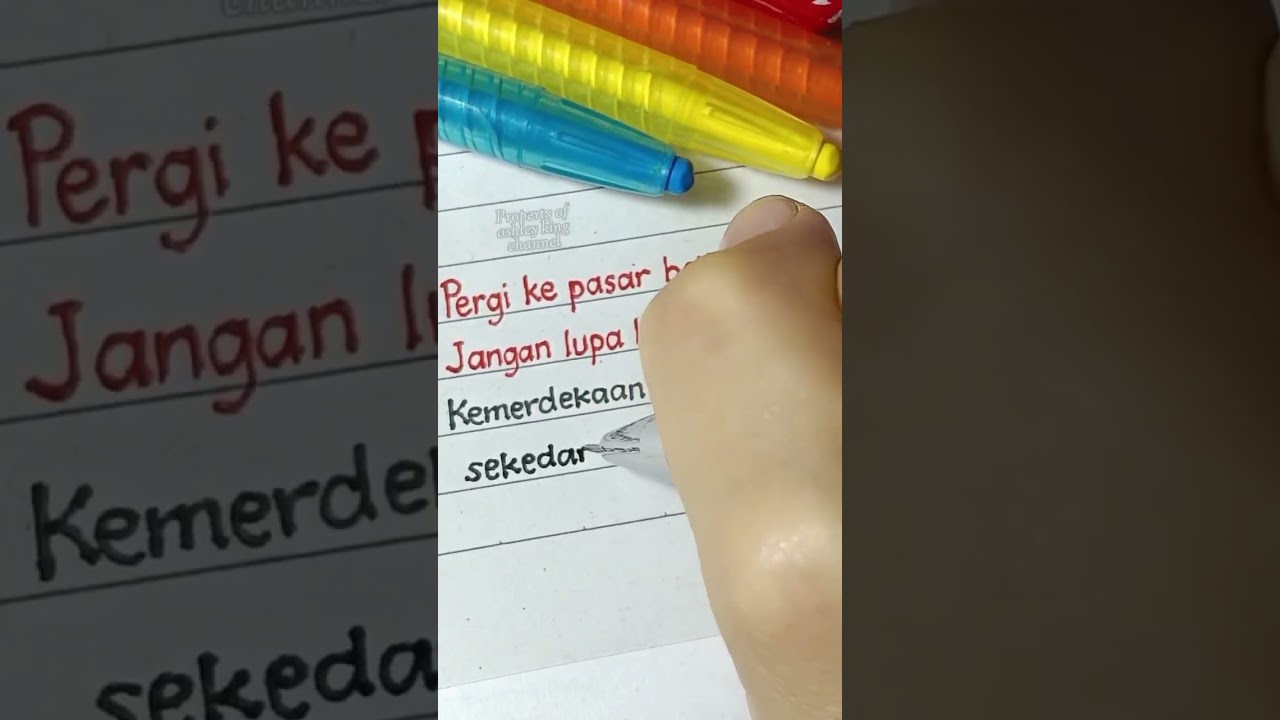 Property of
ashley king
channel
Pergi ke pasar
Jangan lupa
Kemerdekaan
sekedar